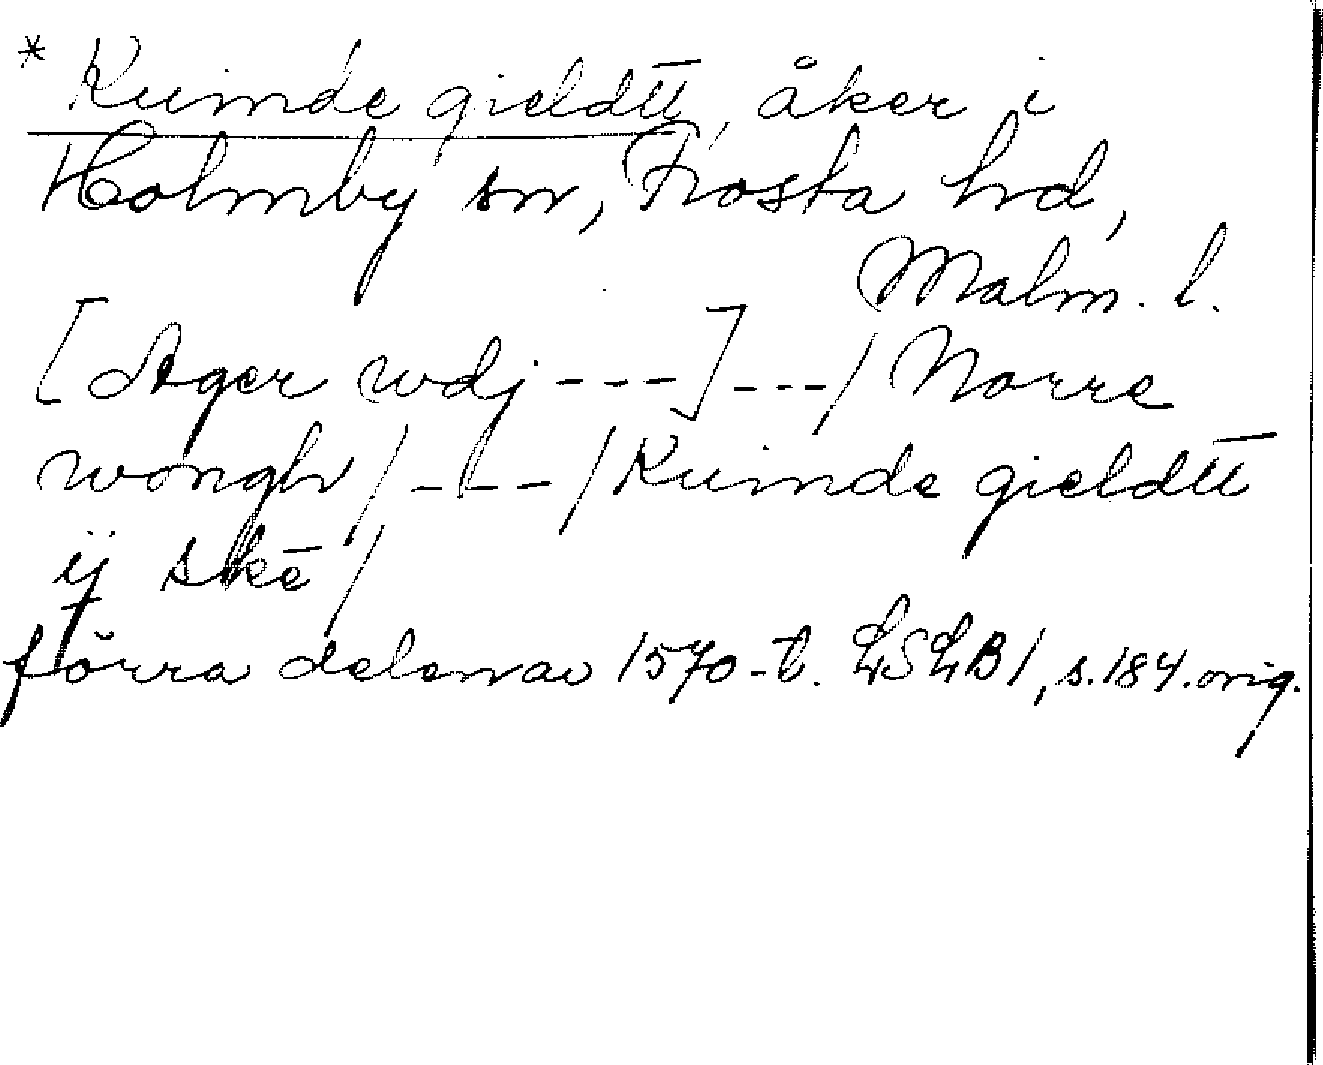 * Kuinde gieldtt̅, åker i
Holmby sn, Frosta hd,
Malm. l.
[Ager wdj ---] ---/ Norre
wongh / --- / Kuinde gieldtt̅
ÿ skē /
förra delen av 1570-t. LSLB 1, s. 184. orig.